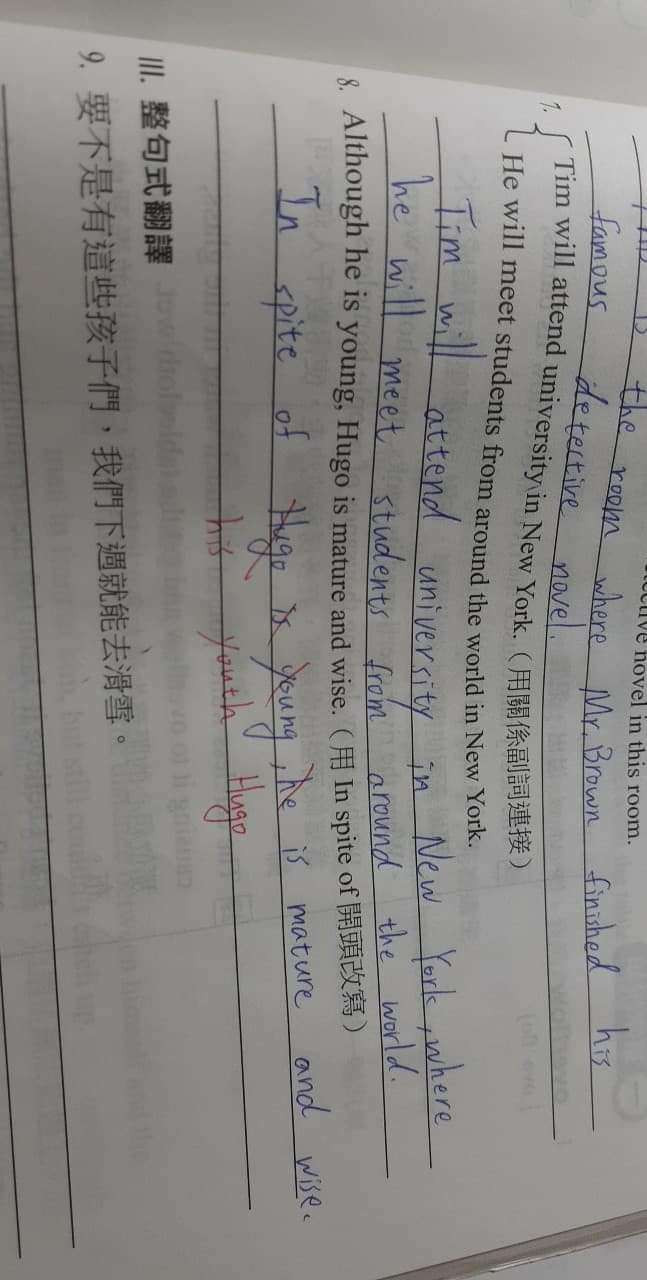 is the room where Mr. Brown finished his
detective novel in this room.
famous detective novel.
7. { Tim will attend university in New York.（用關係副詞連接）
He will meet students from around the world in New York.
Tim will attend university in New York, where
he will meet students from around the world.
8. Although he is young, Hugo is mature and wise.（用 In spite of 開頭改寫）
In spite of Hugo is young, he is mature and wise.
his youth Hugo
III. 整句式翻譯
9. 要不是有這些孩子們，我們下週就能去滑雪。